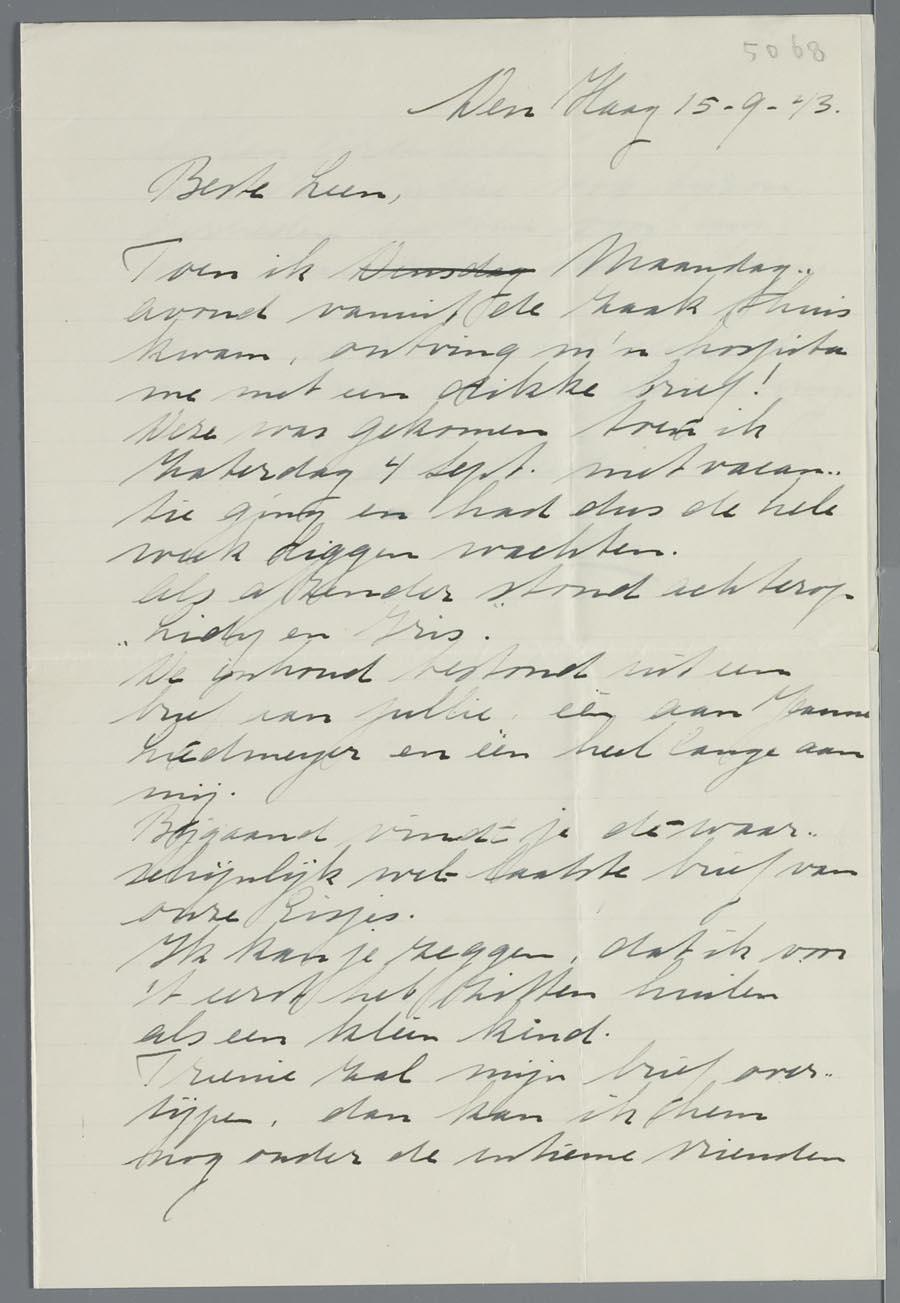 5068
Den Haag 15-9-43.
Beste Leen,
Toen ik Dinsdag Maandag..
avond vanuit de zaak thuis
kwam, ontving m'n hospita
me met een dikke brief!
Deze was gekomen toen ik
Zaterdag 4 Sept. met vacan..
tie ging en had dus de hele
week liggen wachten.
Als afzender stond achterop
"Lidy en Gris".
De inhoud bestond uit een
brief van jullie, één aan
en één heel lange aan
mij.
Bijgaand vindt je de waar..
schijnlijk wel laatste brief van
onze
Ik kan je zeggen, dat ik voor
't eerst heb zitten huilen
als een klein kind.
zal mijn brief over..
typen, dan kan ik hem
nog onder de intieme vrienden